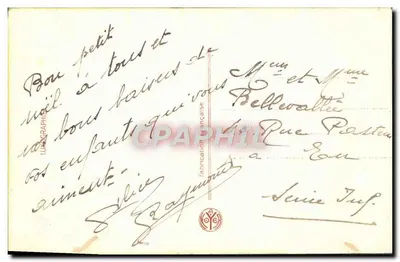 Bon petit
noël à tous et
nos bons baisers de
vos enfants qui vous
aiment
Raymond
et Mme
Rue Pasteur
à Eu
Seine Inf.
CPAPHIL
Fabrication Française